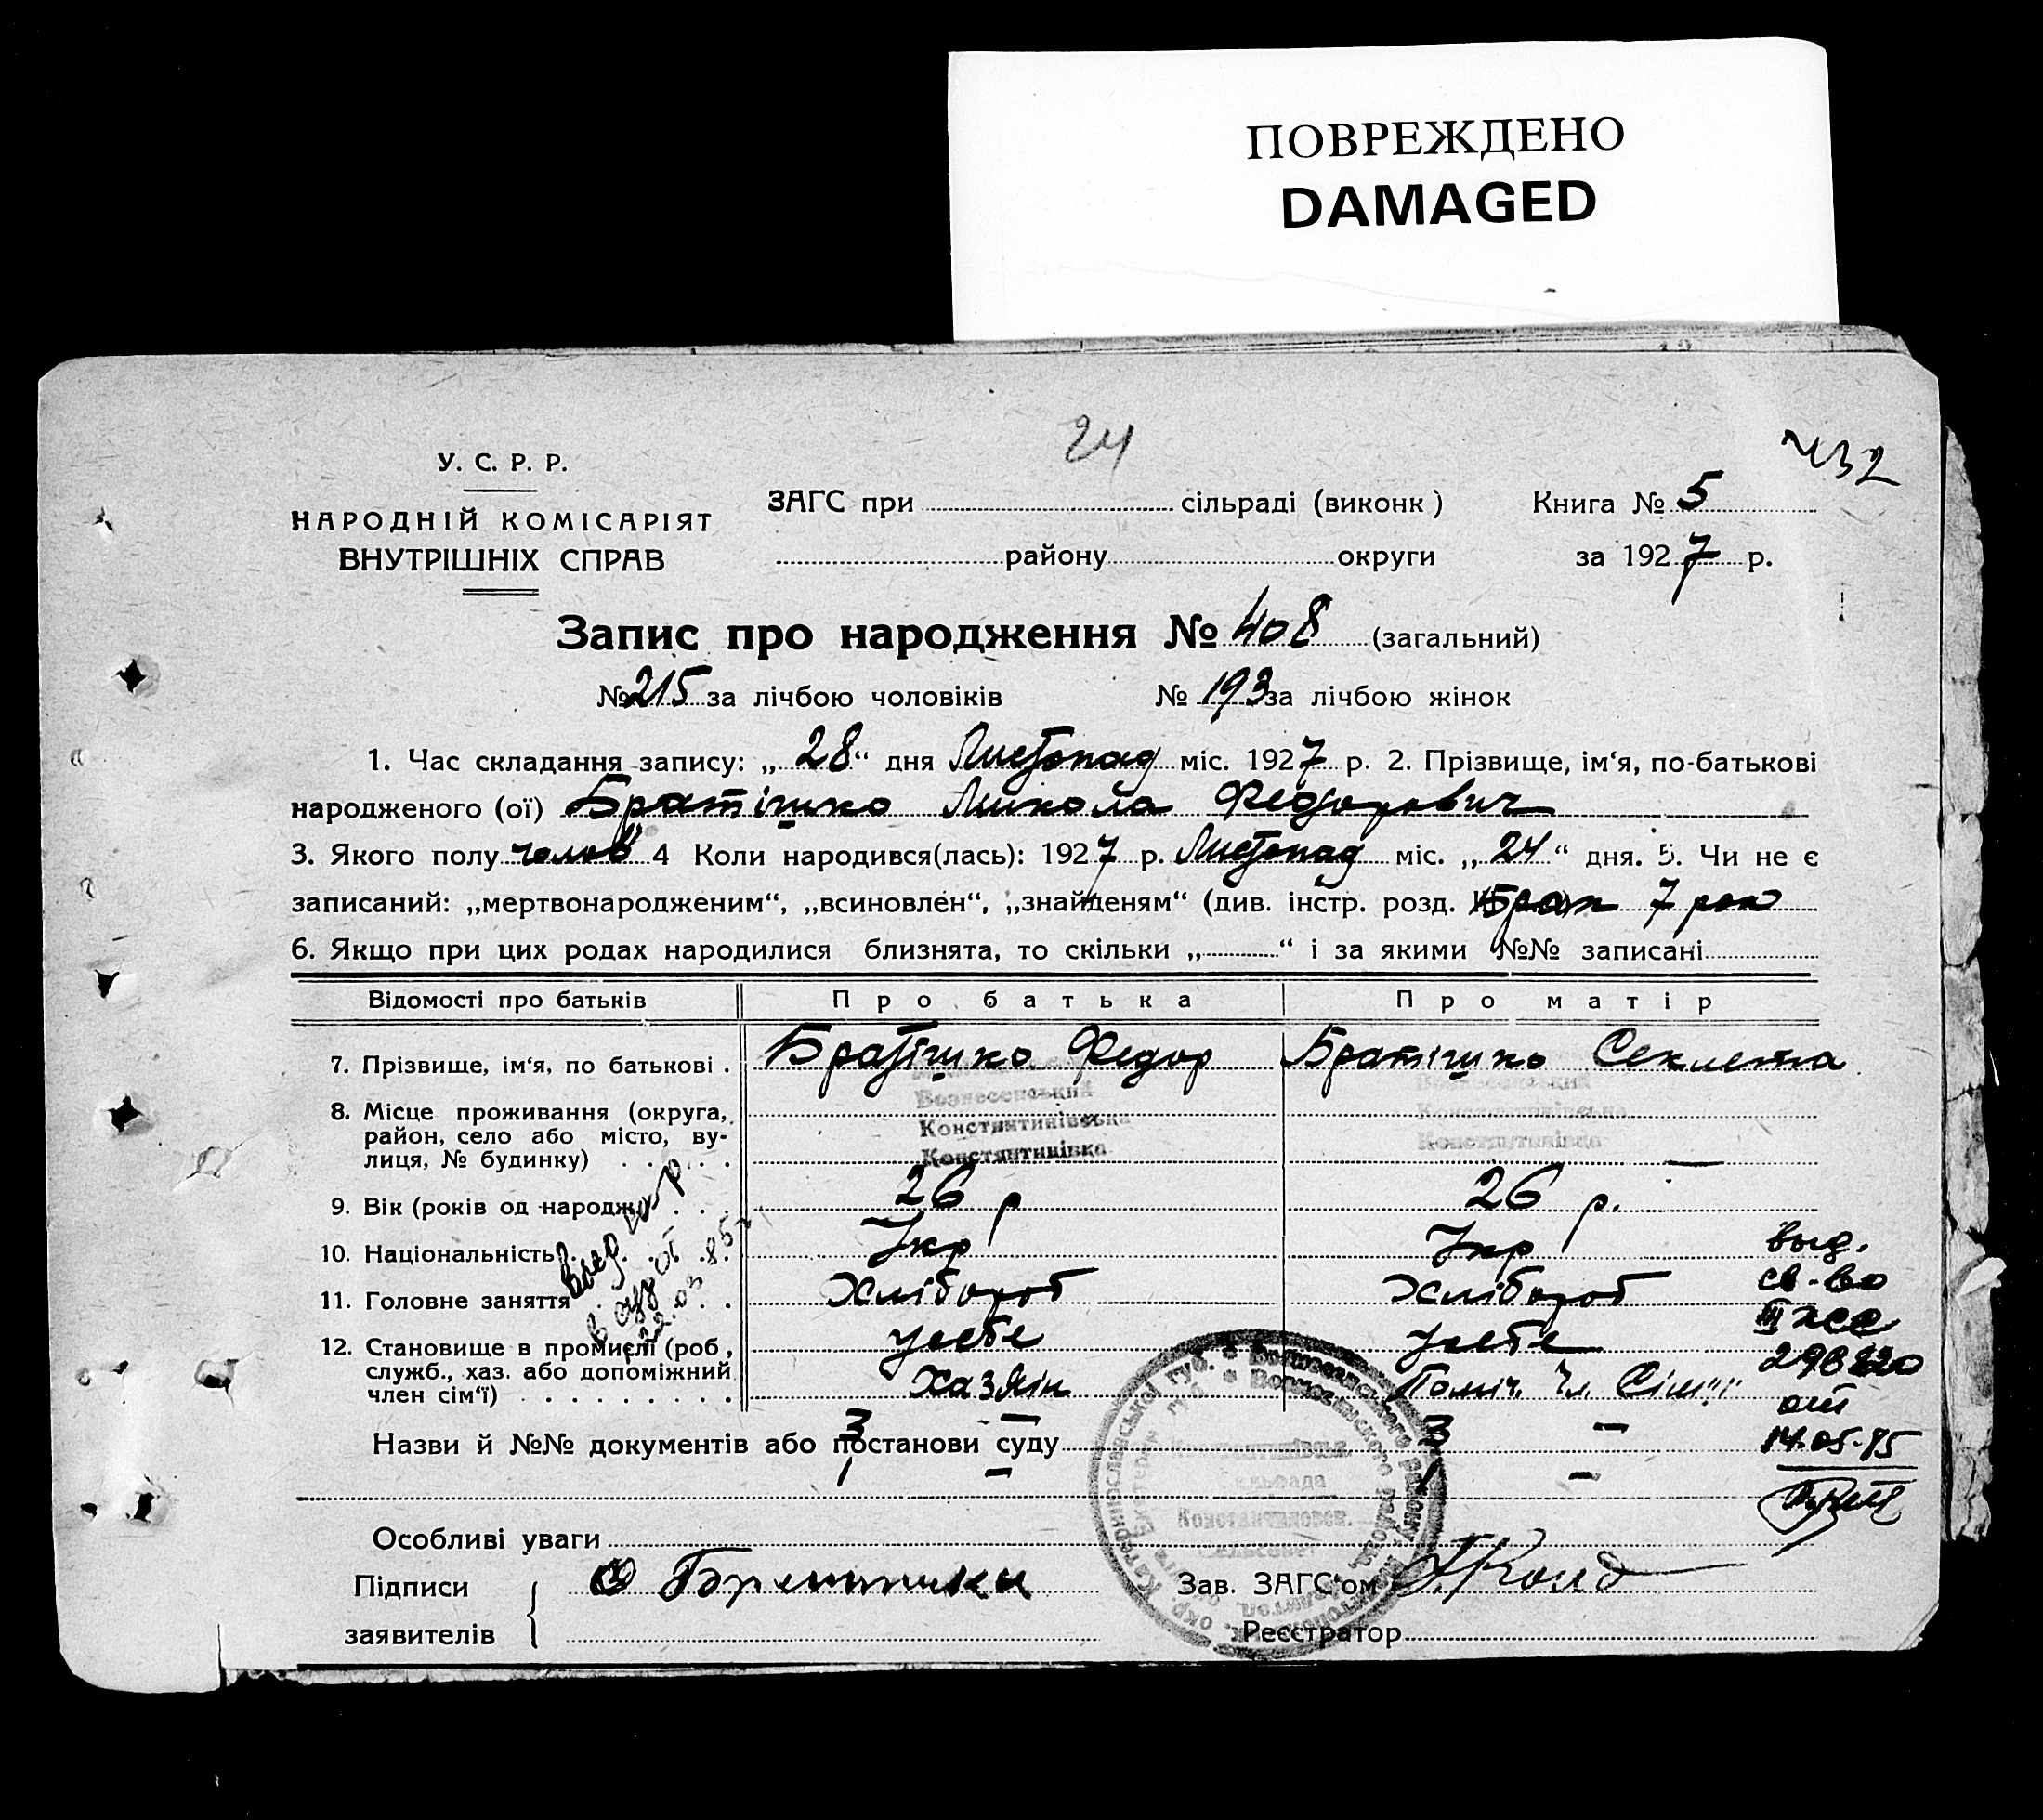 ПОВРЕЖДЕНО
DAMAGED
24
432
У. С. Р. Р.
НАРОДНІЙ КОМІСАРІЯТ
ВНУТРІШНІХ СПРАВ
ЗАГС при сільраді (виконк) Книга № 5
району округи за 1927 р.
Запис про народження № 408 (загальний)
№ 215 за лічбою чоловіків № 193 за лічбою жінок
1. Час складання запису: „28“ дня Листопад міс. 1927 р. 2. Прізвище, ім‘я, по-батькові
народженого (ої) Братішко Микола Федорович
3. Якого полу чолов 4 Коли народився(лась): 1927 р. Листопад міс. „24“ дня. 5. Чи не є
записаний: „мертвонародженим“, „всиновлен“, „знайденям“ (див. інстр. розд. Брак 7 рок
6. Якщо при цих родах народилися близнята, то скільки „ “ і за якими №№ записані
Відомості про батьків Про батька Про матір
7. Прізвище, ім‘я, по батькові . Братішко Федор Братішко Секлета
8. Місце проживання (округа, Вознесенський
район, село або місто, ву- Константинівська Константинівська
лиця, № будинку) Константинівка Константинівка
9. Вік (років од народж. 26 р 26 р.
10. Національність Укр Укр
11. Головне заняття Хлібороб Хлібороб
12. Становище в промислі (роб, у себе у себе
служб., хаз. або допоміжний Хазяін Поміч. Чл. Сім'ї
член сім‘ї)
выд.
св-во
III ЖС
от
14.05.75
22.03.85
Назви й №№ документів або постанови суду 3 — 3 —
1 — 1 —
Особливі уваги
Підписи Братишки Зав. ЗАГС‘ом
заявителів Реєстратор